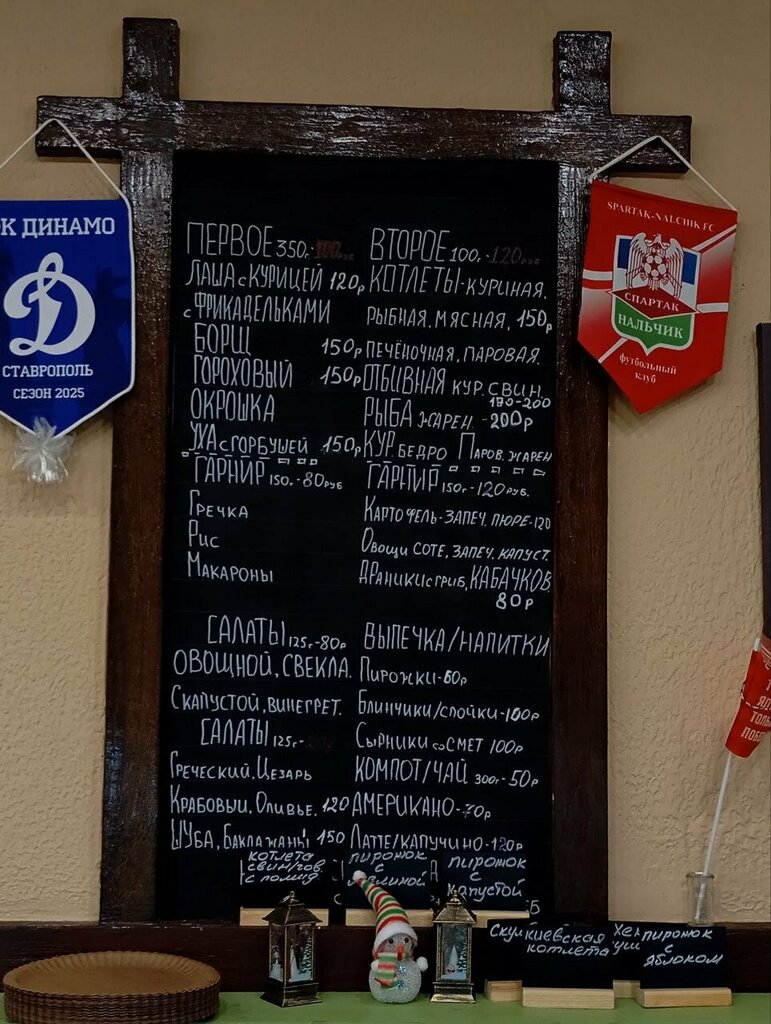 К ДИНАМО
СТАВРОПОЛЬ
СЕЗОН 2025
SPARTAK-NALCHIK FC
СПАРТАК
НАЛЬЧИК
футбольный
клуб
ПЕРВОЕ 350г.-
ЛАПША с КУРИЦЕЙ 120р
с ФРИКАДЕЛЬКАМИ
БОРЩ 150р
ГОРОХОВЫЙ 150р
ОКРОШКА
УХА с ГОРБУШЕЙ 150р
ГАРНИР 150г.-80РУБ
ГРЕЧКА
РИС
МАКАРОНЫ
САЛАТЫ 125г.-80р
ОВОЩНОЙ, СВЕКЛА.
С КАПУСТОЙ, ВИНЕГРЕТ.
САЛАТЫ 125г-
ГРЕЧЕСКИЙ, ЦЕЗАРЬ
КРАБОВЫЙ, ОЛИВЬЕ. 120
ШУБА, БАКЛАЖАНЫ 150
ВТОРОЕ 100г.-120РУБ
КОТЛЕТЫ-КУРИНАЯ.
РЫБНАЯ, МЯСНАЯ, 150р
ПЕЧЁНОЧНАЯ, ПАРОВАЯ.
ОТБИВНАЯ КУР. СВИН.
180-200
РЫБА ЖАРЕН. -200р
КУР. БЕДРО ПАРОВ. ЖАРЕН
ГАРНИР 150г.-120РУБ.
КАРТОФЕЛЬ-ЗАПЕЧ. ПЮРЕ-120
ОВОЩИ СОТЕ, ЗАПЕЧ, КАПУСТ.
ДРАНИКИ с ГРИБ, КАБАЧКОВ.
80р
ВЫПЕЧКА/НАПИТКИ
ПИРОЖКИ-60р
БЛИНЧИКИ/СЛОЙКИ-100р
СЫРНИКИ со СМЕТ 100р
КОМПОТ/ЧАЙ 300г-50р
АМЕРИКАНО-70р
ЛАТТЕ/КАПУЧИНО-120р
котлета
свин/гов
с помид
пирожок
с
пирожок
с
капустой
киевская
котлета
пирожок
с
яблоком